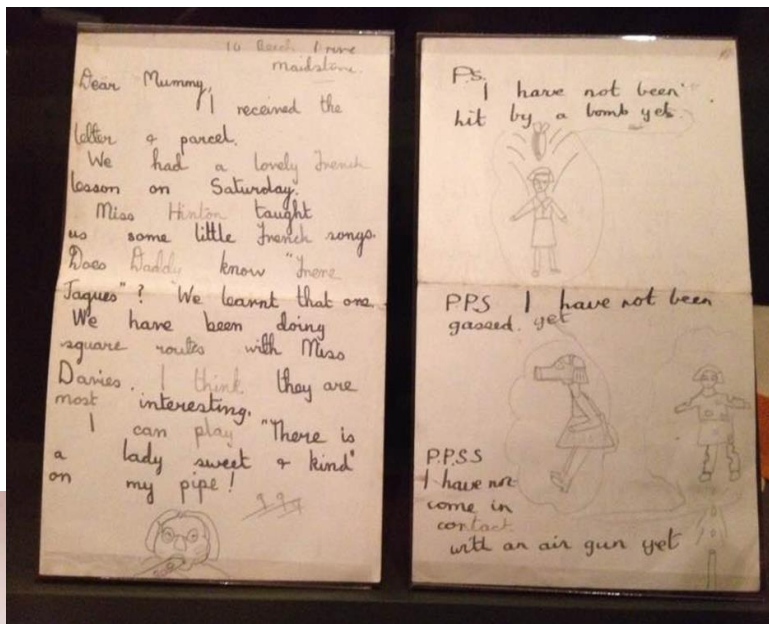 10 Beech Drive
Maidstone.
Dear Mummy,
I received the
letter & parcel.
We had a lovely French
lesson on Saturday.
Miss Hinton taught
us some little French songs.
Does Daddy know "Frere
Jaques"? We learnt that one.
We have been doing
square routes with Miss
Davies. I think they are
most interesting.
I can play "There is
a lady sweet & kind"
on my pipe!
P.S.
I have not been
hit by a bomb yet.
P.P.S I have not been
gassed. yet
P.P.S.S
I have not
come in
contact
with an air gun yet